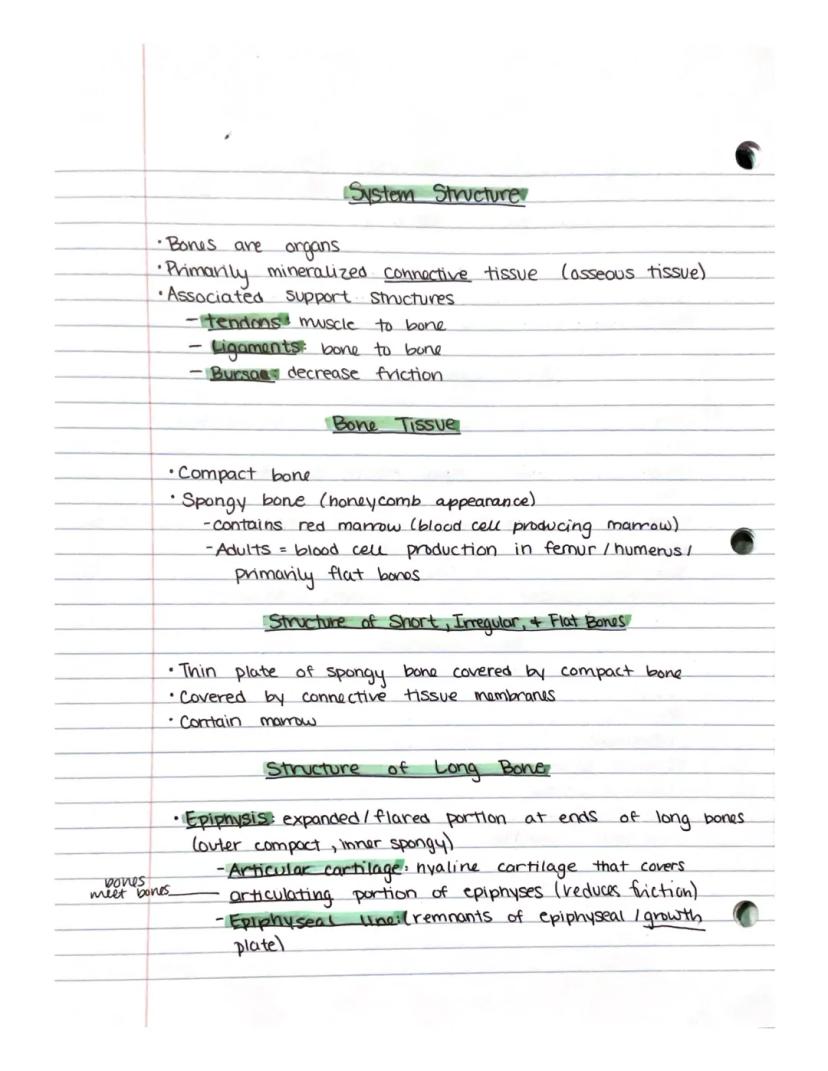 System Structure
• Bones are organs
• Primarily mineralized connective tissue (osseous tissue)
• Associated support structures
– tendons: muscle to bone
– Ligaments: bone to bone
– Bursae: decrease friction
Bone Tissue
• Compact bone
• Spongy bone (honeycomb appearance)
- contains red marrow (blood cell producing marrow)
- Adults = blood cell production in femur / humerus /
primarily flat bones
Structure of Short, Irregular, + Flat Bones
• Thin plate of spongy bone covered by compact bone
• Covered by connective tissue membranes
• Contain marrow
Structure of Long Bone
• Epiphysis: expanded / flared portion at ends of long bones
(outer compact, inner spongy)
- Articular cartilage: hyaline cartilage that covers
bones
meet bones
articulating portion of epiphyses (reduces friction)
- Epiphyseal line: (remnants of epiphyseal / growth
plate)